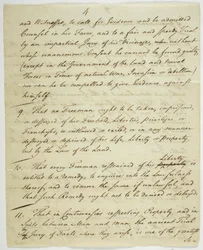 4
and Witnesses, to call for Evidence and be admitted
Counsel in his Favor, and to a fair and speedy Trial
by an impartial Jury of his Vicinage, without
whose unanimous Consent he cannot be found guilty,
except in the Government of the land and naval
Forces in Time of actual War, Invasion or Rebellion;
nor can he be compelled to give Evidence against
himself.
9. That no Freeman ought to be taken, imprisoned,
or deprived of his Freehold, Liberties, Privileges or
Franchises, or outlawed or exiled, or in any manner
destroyed or deprived of his Life, Liberty or Property,
but by the Law of the Land.
10. That every Freeman restrained of his Liberty is
entitled to a remedy, to enquire into the Lawfulness
thereof, and to remove the same if unlawful, and
that such Remedy ought not to be denied or delayed.
11. That in Controversies respecting Property, and in
Suits between Man and Man, the ancient Trial
by Jury of Facts, where they arise, is one of the greatest